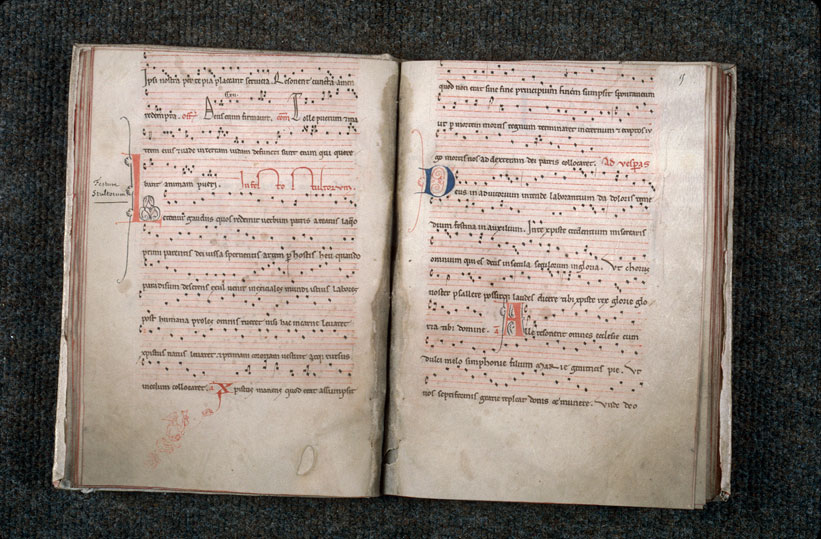 ipsi nostra precepia placeant servicia. Resonent cuncta amen
redempta. off. Deus enim firmavit. Com. Tolle puerum & ma
trem eius & vade in terram iudam defuncti sunt enim qui quere
bant animam pueri. In festo stultorum.
Festum
Stultorum
gaudiis quos redemit verbum patris a reatu lapso
primi parentis dei iussa spernentis arcem per hostis heu quando
paradisum deserens exul venit
post humana proles omnis rueret nisi hac
natus levaret. & primam
in celum collocaret. Xpistus manens quod erat assumpsit
quod non erat sine fine principium finem simpsit spontaneum
ut per mortem mortis regnum terminaret inceternum &
go mortis nos ad dexteram dei patris collocaret. Ad vesperas
Deus in adiutorium intende laborantium da doloris reme
dium festina in auxilium. Inte xpiste credentium miseraris
omnium qui es deus in secula seculorum in gloria. Ut chorus
noster psallere possit & laudes dicere tibi xpiste rex glorie glo
ria tibi domine. a Alle resonent omnes ecclesie cum
dulci melo simphonie filium Marie genitricis pie. Ut
nos septiformis gratie repleat donis & munere. Unde deo